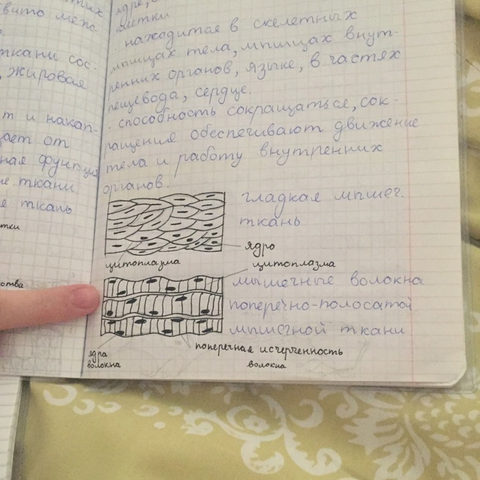 свуто меж
ткани сос-
жировая
т и накап-
щает от
ная функция
е ткани.
я ткань
ядре, с
клетки
находится в скелетных
мышцах тела, мышцах внут-
ренних органов, языке, в частях
пещевода, сердце.
· способность сокращаться, сок-
ращения обеспечивают движение
тела и работу внутренних
органов.
гладкая мышеч.
ткань
ядро
цитоплазма
цитоплазма
мышечные волокна
поперечно-полосатой
мышечной ткани
ядра
волокна
поперечная исчерченность
волокна